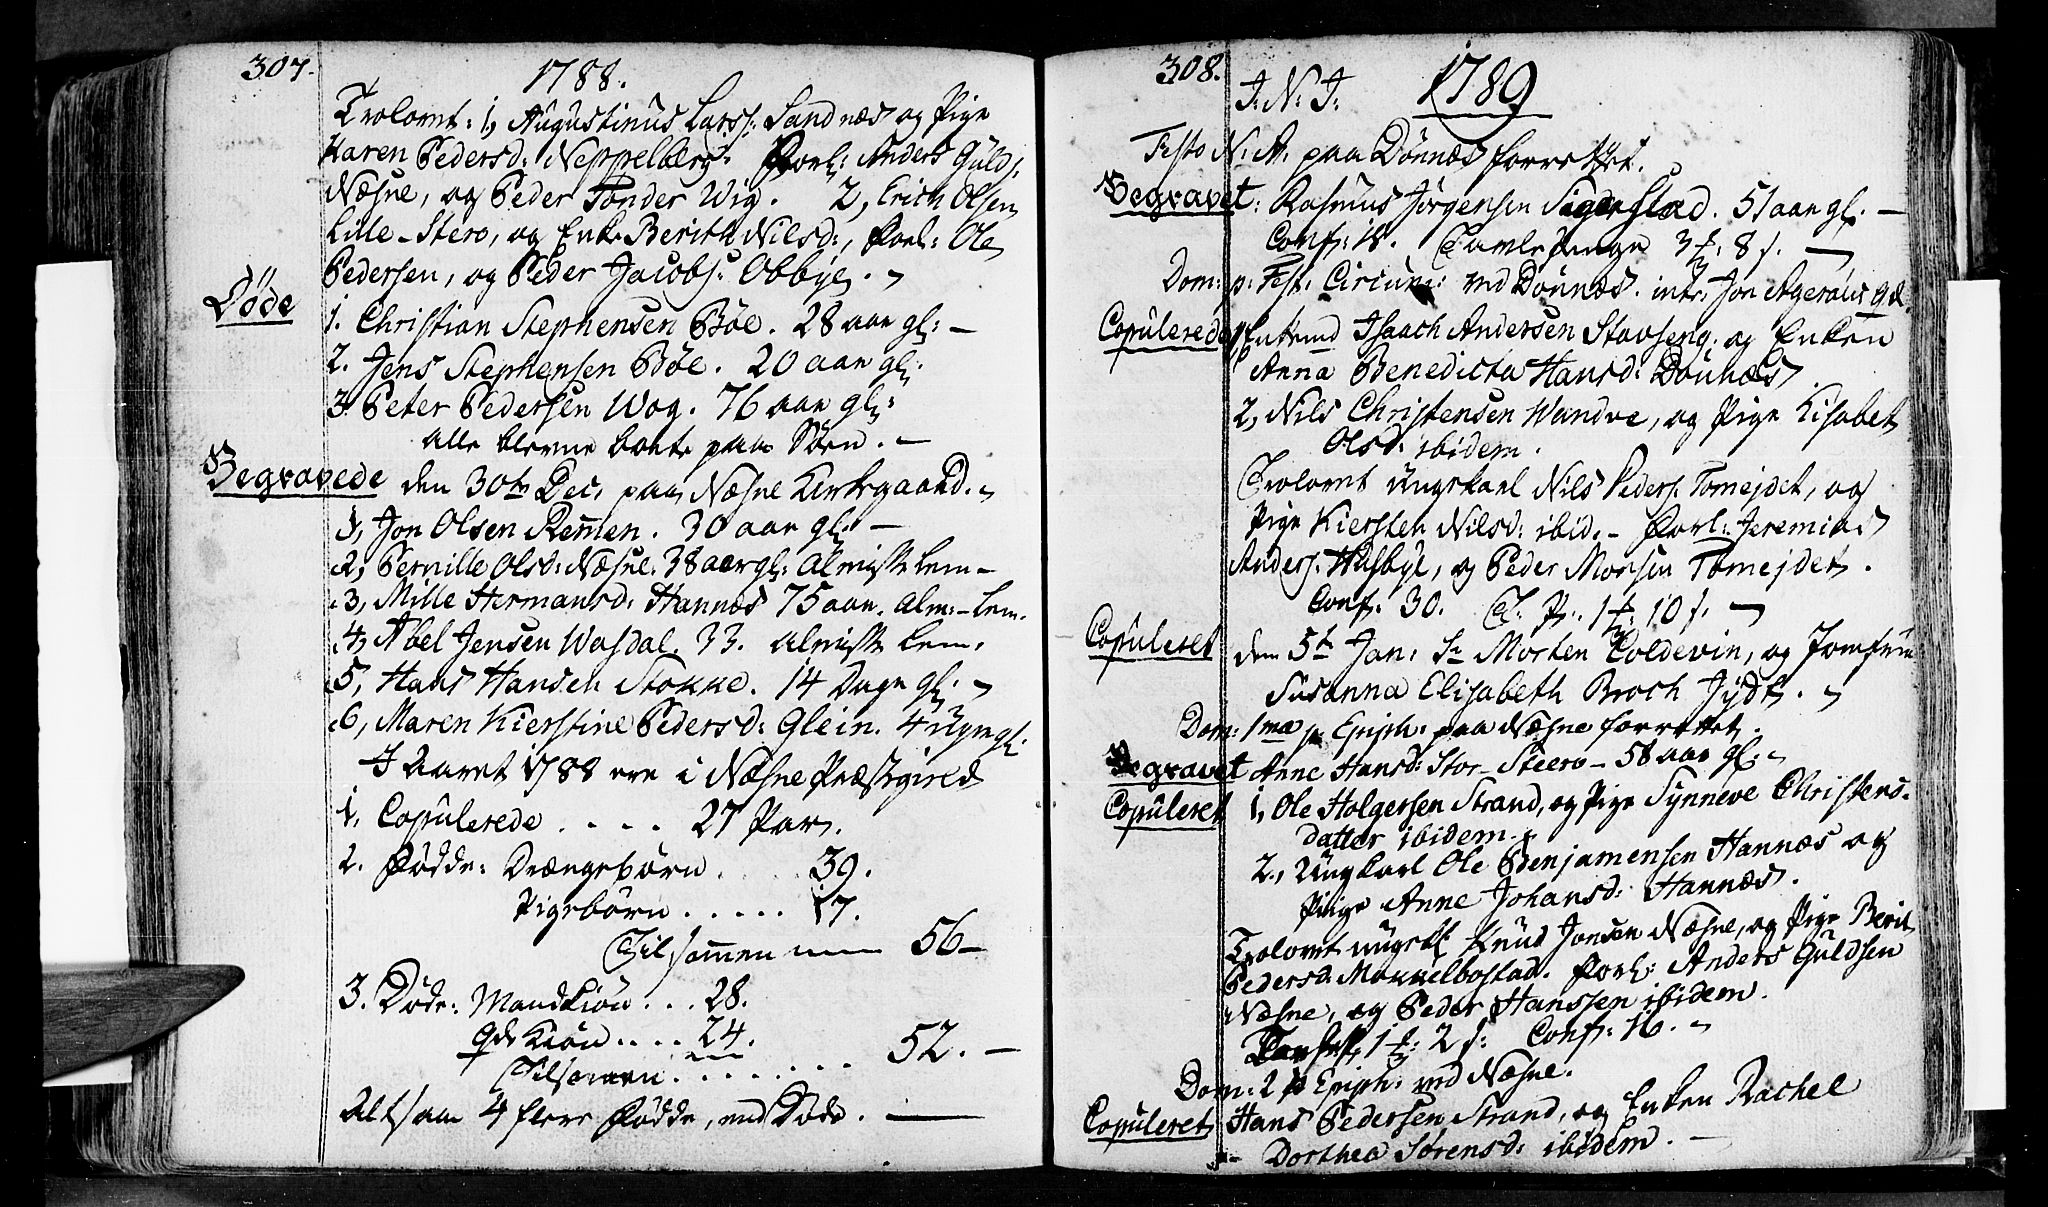 307.
1788.
Trolovet: 1, Augustinus Larss: Sandnæs og Pige
Karen Pedersd: Neppelberg. Forl: Anders Gulds:
Næsne, og Peder Tønder Wig. 2, Erich Olsen
Lille-Stero, og Enke Berith Nilsd:, Forl: Ole
Pedersen, og Peder Jacobs: Obbye.
Døde
1. Christian Stephensen Bøe. 28 aar gl: —
2. Jens Stephensen Bøe. 20 aar gl:
3. Peter Pedersen Wog. 76 aar gl:
alle bleve borte paa Søen. —
Begravede den 30te Dec: paa Næsne Kirkegaard.
1, Jon Olsen Remen. 30 aar gl: —
2, Pernille Olsd: Næsne. 38 aar gl: Almisse Lem —
3, Mille Hermansd: Hannæs 75 aar. Alm: Lem.
4, Abel Jensen Wasdal. 33. Almisse Lem:
5, Hans Hansen Stokke. 14 Dage gl:
6, Maren Kierstine Pedersd: Glein. 4 Uger gl:
I Aaret 1788 ere i Næsne Præstegield
1. Copulerede . . . . 27 Par.
2. Fødde: Drængebørn . . . 39.
Pigebørn . . . . . 17.
Tilsammen 56 —
3. Døde: Mandkiøn . . . 28.
Qdekiøn . . . . 24.
Tilsamen . . . . . . . . 52. —
Altsaa 4 flere Fødde, end Døde. —
308.
J: N: J: 1789
Festo N: A: paa Dønnæs forrettet.
Begravet: Rasmus Jørgensen Sigerstad. 51 aar gl: —
Conf: 18. Tavle penge 3 8 s. —
Dom: p: Fest. Circum: ved Dønnæs. intr: Jon Agerøens Qd.
Copulerede 1, Enkemd Isaach Andersen Stavseng. og Enken
Anna Benedicta Hansd: Dønnæs
2, Nils Christensen Wandve, og Pige Lisabet
Olsd: ibidem.
Trolovet Ungkarl Nils Peders: Tomejdet, og
Pige Kiersten Nilsd: ibid. — Forl: Jeremias
Anders: Husbye, og Peder Morsen Tomejdet.
Conf: 30. T. P. 1 10 s. —
Copuleret den 5te Jan: Sr Morten Coldevin, og Jomfrue
Susanna Elisabeth Broch Jydt.
Dom: 1ma p: Epiph: paa Næsne forrettet.
Begravet Anne Hansd: Stor-Steero — 58 aar gl:
Copuleret 1, Ole Holgersen Strand, og Pige Synneve Christens-
datter ibidem.
2., Ungkarl Ole Benjamensen Hannæs og
Pige Anne Johansd: Hannæs.
Trolovet ungkl: Knud Jonsen Næsne, og Pige Berit
Pedersd: Mekkelbostad. Forl: Anders Guldsen
Næsne, og Peder Hanssen ibidem.
1 2 s: Conf: 16.
Dom: 2 p Epiph: ved Næsne.
Copuleret Hans Pedersen Strand, og Enken Rachel
Dorthea Sørensd: ibidem. —